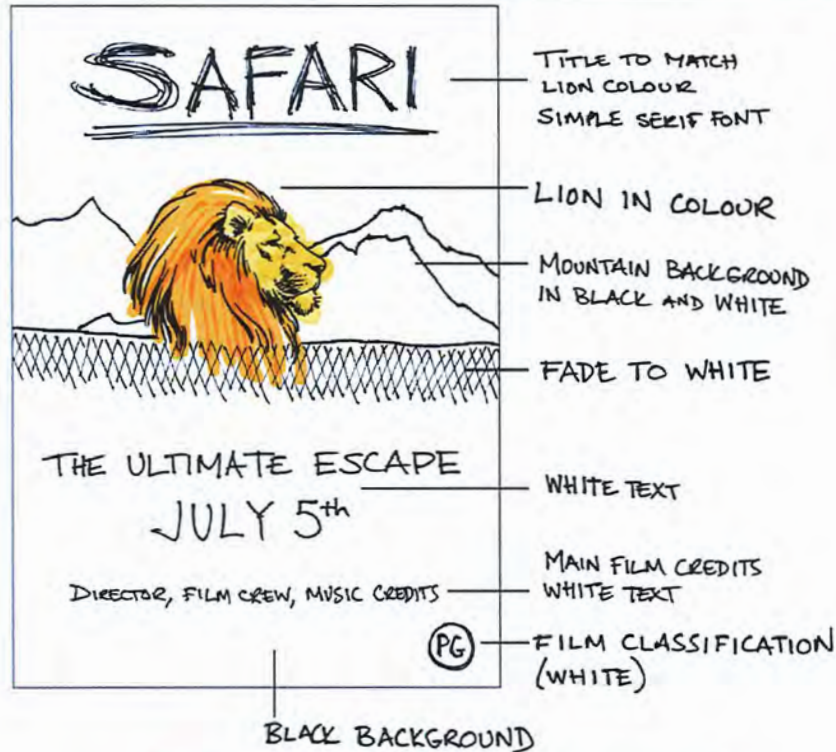 SAFARI
TITLE TO MATCH
LION COLOUR
SIMPLE SERIF FONT
LION IN COLOUR
MOUNTAIN BACKGROUND
IN BLACK AND WHITE
FADE TO WHITE
THE ULTIMATE ESCAPE
JULY 5th
WHITE TEXT
DIRECTOR, FILM CREW, MUSIC CREDITS
MAIN FILM CREDITS
WHITE TEXT
PG
FILM CLASSIFICATION
(WHITE)
BLACK BACKGROUND